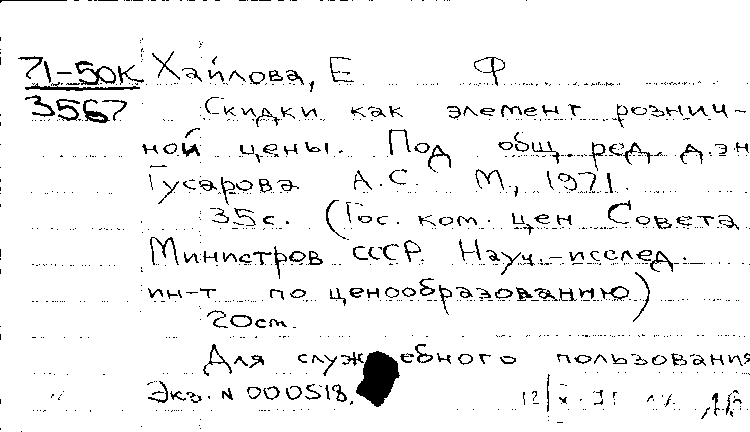 71-50К Хайлова, Е Ф
3567 Скидки как элемент рознич-
ной цены. Под общ. ред. д.эн
Гусарова А.С. М., 1971.
35с. (Гос. ком. цен Совета
Министров СССР. Науч.-исслед.
ин-т по ценообразованию)
20см.
Для служебного пользования
Экз. N 000518.